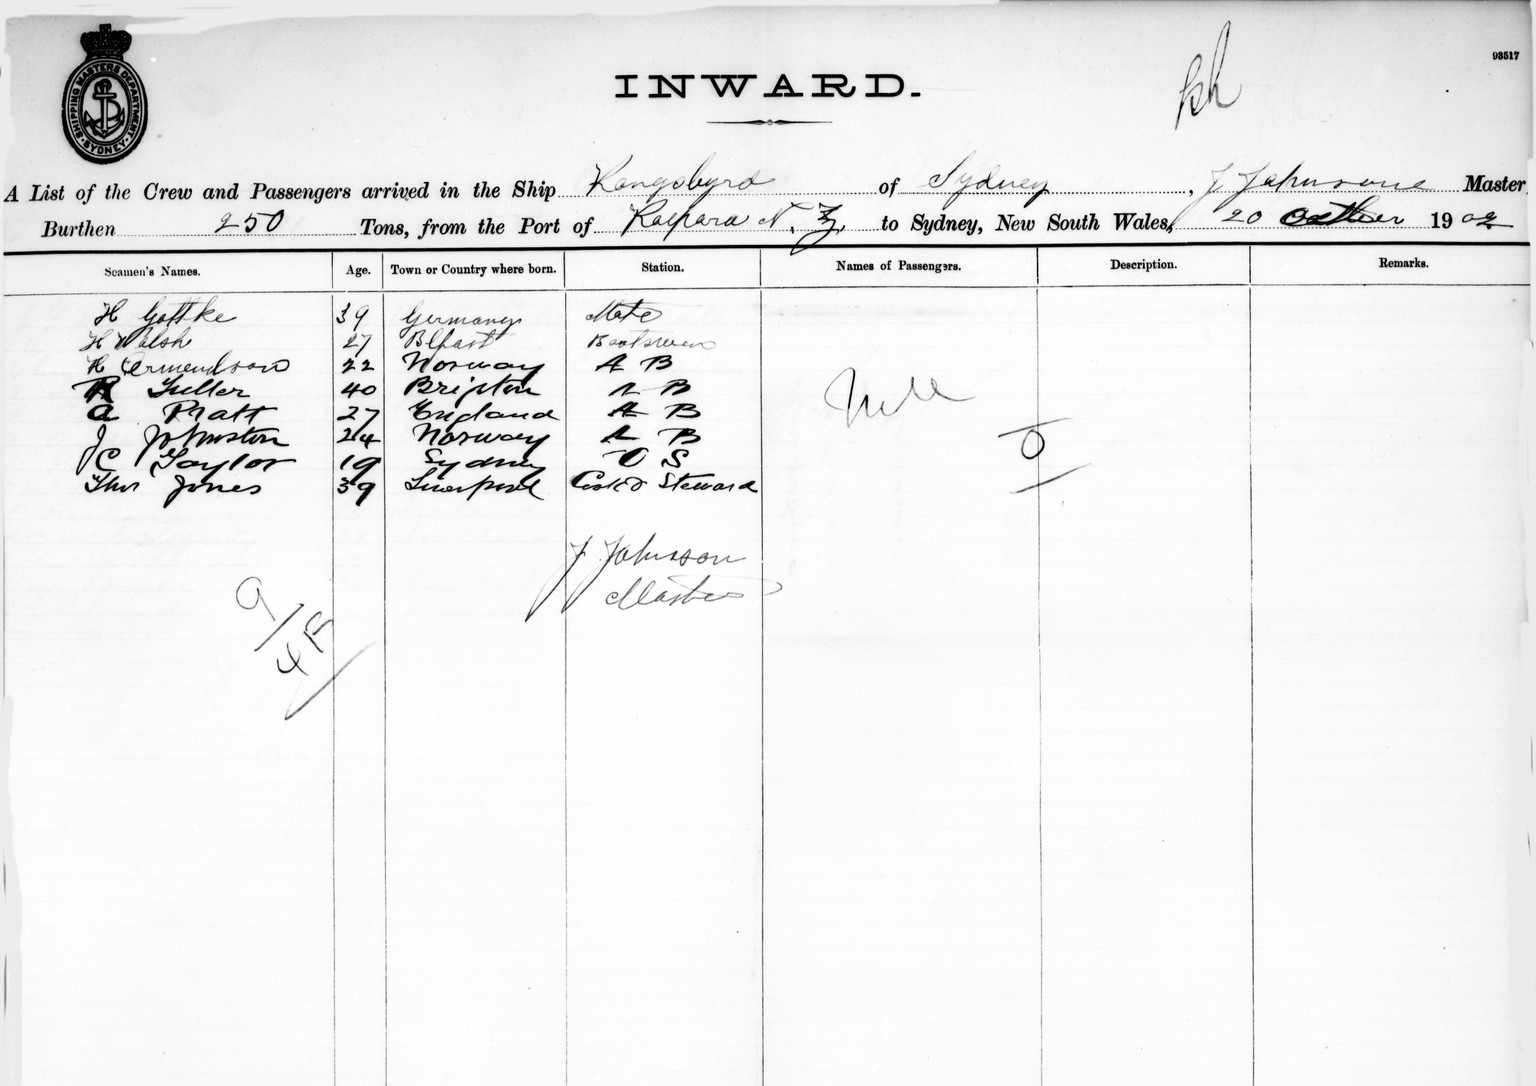 93517
SHIPPING MASTERS DEPARTMENT
SYDNEY
INWARD.
A List of the Crew and Passengers arrived in the Ship Kongsbyrd of Sydney, J Johnsone Master
Burthen 250 Tons, from the Port of Kaipara N.Z. to Sydney, New South Wales, 20 October 1902
Seamen's Names. Age. Town or Country where born. Station. Names of Passengers. Description. Remarks.
H Gottke 39 Germany Mate
H Walsh 27 Blfast Boatswain
H Armendson 22 Norway A B
R Fuller 40 Brighton A B
A Pratt 27 England A B
J Johnston 24 Norway A B
J C Taylor 19 Sydney O S
Thos Jones 39 Liverpool Cook & Steward
Nill
J Johnson
Master
9